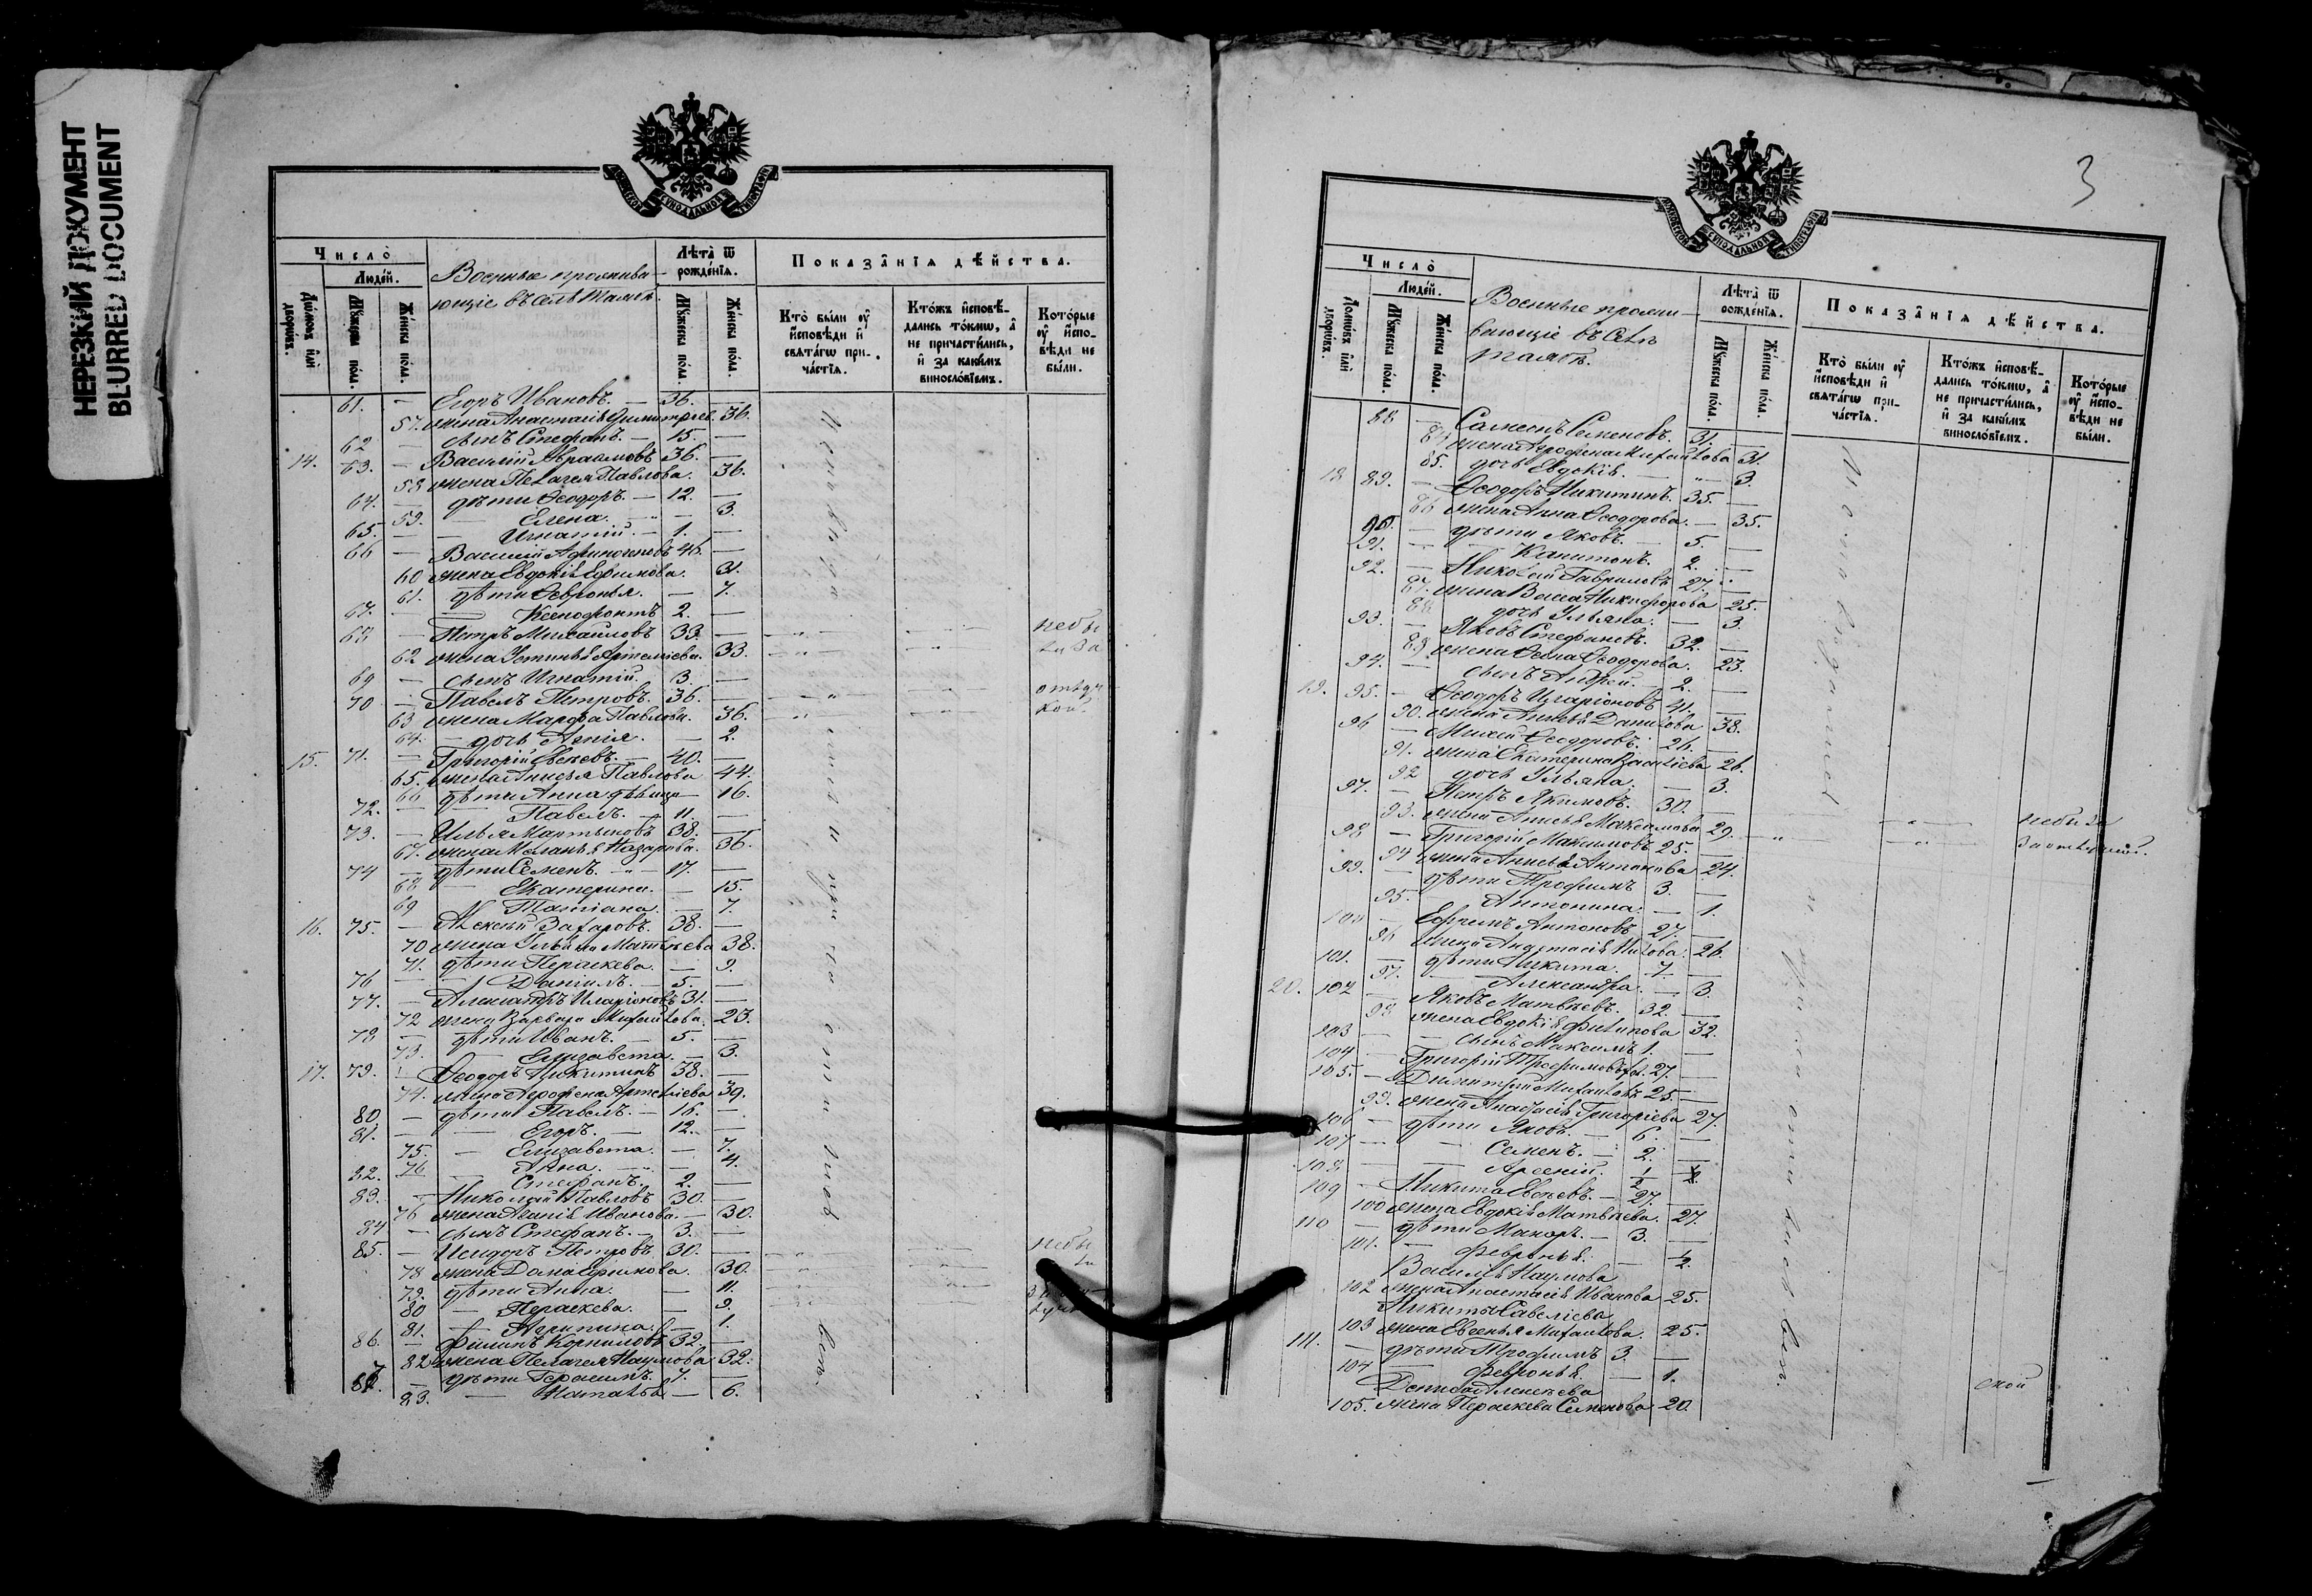 НЕРЕЗКИЙ ДОКУМЕНТ
BLURRED DOCUMENT
МОСКОВСКОЙ СѴНОДАЛЬНОЙ ТИПОГРАФІИ
Число̀
Люде́й.
Домѡ́въ и҆лѝ дворѡ́въ.
Мꙋ́жеска по́ла.
Же́нска по́ла.
Военные прожива-
ющіе въ селѣ
Лѣ́та ѿ рожде́нїѧ.
Мꙋ́жеска по́ла.
Же́нска по́ла.
Показа̑нїѧ дѣ́йства.
Кто̀ бы́ли ᲂу҆ и҆сповѣди и҆ свѧта́гѡ при-ча́стїѧ.
Кто́жъ и҆сповѣ-дались то́кмѡ, а҆ не причасти́лись, и҆ за каки́мъ винослові́емъ.
Кото́рые ᲂу҆ и҆спо-вѣди не бы́ли.
61. — Егоръ Ивановъ. — 36. —
57. жена Анастасія Димитріев. 36.
62 — сынъ Стефанъ. — 15. —
14. 63. — Василій Авраамовъ 36. —
58 жена Пелагея Павлова. 36.
64. — дѣти Ѳеодоръ. — 12. —
59. — Елена. — 3.
65. — Игнатій. — 1. —
66 — Василій 46. —
60 жена Евдокія Ефимова. 31.
61. дѣти Ѳевронья. — 7.
67. — Ксенофонтъ 2. —
68. — Петръ Михайловъ 33. — небы
62 жена Устинья Артеміева. 33. ли за
69 — сынъ Игнатій. 3. —
70 — Павелъ Петровъ. 36. — отлуч
63 жена Марѳа Павлова. 36. кой.
64. — дочь — 2.
15. 71. — Григорій Евсеевъ. — 40. —
65. жена Анисья Павлова 44.
66 дѣти Анна дѣвица — 16.
72. — Павелъ. — 11. —
73. — Илья Мартыновъ 38. —
67. жена Меланья Назарова. 36.
74 — дѣти Семенъ. — 17. —
68 — Екатерина. — 15.
69 — Татіана. — 7.
16. 75. — Алексей Захаровъ. 38. —
70 жена Ульяна Матвѣева 38.
71. дѣти Перасĸева. — 9.
76 — Даніилъ. — 5. —
77. — Александръ Иларіоновъ 31. —
72 жена Варвара Михайлова. 23.
78 — дѣти Иванъ. — 5. —
73. — Елизавета. — 3.
17. 79. — Ѳеодоръ Никитинъ 38. —
74. жена Агрофена Артеміева 39.
80. — дѣти Павелъ. — 16. —
81. — Егоръ. — 12. —
75. — Елизавета. — 7.
76 — Анна. — 4.
82. — Стефанъ. 2. —
83. — Николай Павловъ 30. —
76 жена Агапія Иванова. — 30.
84 — сынъ Стефанъ. — 3. —
85. — Исидоръ Петровъ. 30. — небы
78 жена Дома Ефимова. 30. ли
79. дѣти Анна. — 11.
80 — Перасĸева. — 9.
81. — Агрипина. — 1.
86. — Филипъ Корниловъ 32. —
82 жена Пелагея Наумова 32.
87. — дѣти Герасимъ. 7. —
83. — Наталья — 6.
3
МОСКОВСКОЙ СѴНОДАЛЬНОЙ ТИПОГРАФІИ
Число̀
Люде́й.
Домѡ́въ и҆лѝ дворѡ́въ.
Мꙋ́жеска по́ла.
Же́нска по́ла.
Военные прожи-
вающіе въ селѣ
Лѣ́та ѿ рожде́нїѧ.
Мꙋ́жеска по́ла.
Же́нска по́ла.
Показа̑нїѧ дѣ́йства.
Кто̀ бы́ли ᲂу҆ и҆сповѣди и҆ свѧта́гѡ при-ча́стїѧ.
Кто́жъ и҆сповѣ-дались то́кмѡ, а҆ не причасти́лись, и҆ за каки́мъ винослові́емъ.
Кото́рые ᲂу҆ и҆спо-вѣди не бы́ли.
88 — Самсонъ Семеновъ. 31. —
84 жена Агрофена Михайлова 31.
85. дочь Евдокія. — 3.
18 89. — Ѳеодоръ Никитинъ. 35. —
86 жена Анна Ѳеодорова. — 35.
90. — дѣти Яковъ. 5. —
91. — Капитонъ. 2. —
92. — Николай Гавриловъ 27. —
87. жена Васса Никифорова 25.
88. дочь Ульяна. — 3.
93. — Яковъ Стефановъ. 32. —
89 жена Ѳекла Ѳеодорова. 23.
94. — сынъ Андрей. — 2. —
19. 95. — Ѳеодоръ Иларіоновъ 41. —
90. жена Анисья Данилова 38.
96 — Михей Ѳеодоровъ. 26. —
91. жена Екатерина Василіева 26.
92 дочь Ульяна. — 3.
97. — Петръ Якимовъ. 30. —
93. жена Анисья Максимова 29. небы за
98 — Григорій Максимовъ 25. —
94 жена Анисья Антонова 24.
99. — дѣти Трофимъ 3. —
95. Антонина. — 1.
100 — Ефремъ Антоновъ 27. —
96 жена Анастасія Титова. 26.
101. — дѣти Никита. 7 —
97. — Александра. — 3.
20. 102 — Яковъ Матвѣевъ. 32. —
98. жена Евдокія Филипова 32.
103 — сынъ Максимъ 1. —
104 — Григорій Трофимовъ 27. —
105 — Димитрій Михайловъ 25. —
99. жена Анастасія Григоріева 27.
106 — дѣти Яковъ. — 6. —
107 — Семенъ. — 2. —
108. — Арсеній. ½
109 — Никита Евсеевъ. — 27. —
100 жена Евдокія Матвѣева. 27.
110 — дѣти Макаръ. — 3. —
101. — Февронья. — ½
Василья Наумова
102 жена Анастасія Иванова 25.
Никиты Савеліева
103 жена Евгенья Михайлова. 25.
111. — дѣти Трофимъ 3. —
104 Февронья. — 1.
Дениса Алексеева
105. жена Перасĸева Семенова 20.